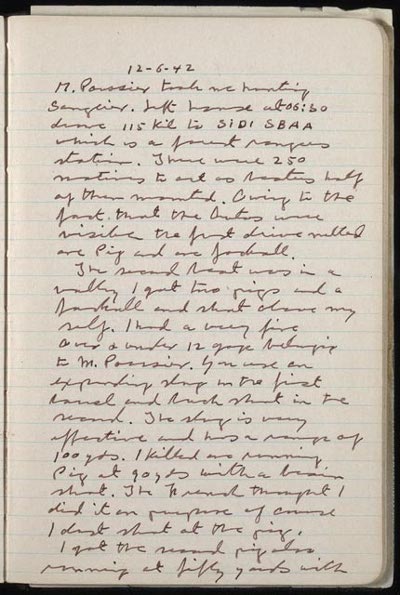 12-6-42
M. Poussier took me hunting
Sanglier. Left house at 06:30
drove 115 Kil to SIDI SBAA
which is a forest rangers
station. There were 250
natives to act as beaters half
of them mounted. Owing to the
fact that the Autos were
visible the first drive netted
one Pig and one Jackall.
The second beat was in a
valley I got two pigs and a
Jackall and shot above my
self. I had a very fine
over & under 12 gage belonging
to M. Poussier. You use an
expanding slug in the first
barrel and buck shot in the
second. The slug is very
effective and has a range of
100 yds. I killed one running
Pig at 90 yds with a brain
shot. The French thought I
did it on purpose of course
I just shot at the pig.
I got the second pig also
running at fifty yards with